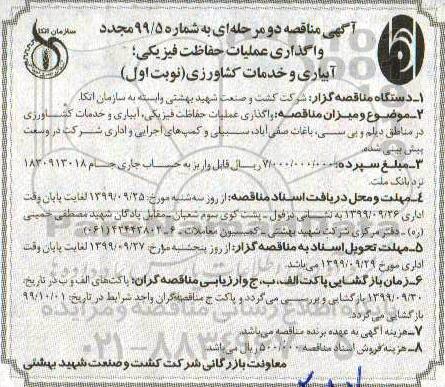 آگهی مناقصه دو مرحله‌ای به شماره ۹۹/۵ مجدد
واگذاری عملیات حفاظت فیزیکی؛
آبیاری و خدمات کشاورزی (نوبت اول)
سازمان اتکا
۱- دستگاه مناقصه گزار: شرکت کشت و صنعت شهید بهشتی وابسته به سازمان اتکا.
۲- موضوع و میزان مناقصه: واگذاری عملیات حفاظت فیزیکی، آبیاری و خدمات کشاورزی
در مناطق دیلم و بی سی، باغات صفی آباد، سبیلی و کمپ‌های اجرایی و اداری شرکت در وسعت
پیش بینی شده.
۳- مبلغ سپرده: ۷/۰۰۰/۰۰۰/۰۰۰ ریال قابل واریز به حساب جاری جام ۱۸۳۰۹۱۳۰۱۸
نزد بانک ملت.
۴- مهلت و محل دریافت اسناد مناقصه: از روز سه‌شنبه مورخ: ۱۳۹۹/۰۹/۲۵ لغایت پایان وقت
اداری ۱۳۹۹/۰۹/۲۶ به نشانی دزفول - پشت کوی سوم شعبان - مقابل یادگان شهید مصطفی خمینی
(ره) - دفتر مرکزی شرکت شهید بهشتی - کمیسیون معاملات.
۵- مهلت تحویل اسناد به مناقصه گزار: از روز پنجشنبه مورخ ۱۳۹۹/۰۹/۲۷ لغایت پایان وقت
اداری مورخ ۱۳۹۹/۰۹/۲۹ می‌باشد.
۶- زمان بازگشایی پاکت الف، ب، ج و ارزیابی مناقصه گران: پاکت‌های الف و ب در تاریخ،
۱۳۹۹/۰۹/۳۰ بازگشایی و بررسی می‌گردد و پاکت ج مناقصه‌گران واجد شرایط در تاریخ: ۹۹/۱۰/۰۱
بازگشایی می‌گردد.
۷- هزینه آگهی به عهده برنده مناقصه می‌باشد.
۸- هزینه فروش اسناد مناقصه ۵۰۰/۰۰۰ ریال می‌باشد.
معاونت بازرگانی شرکت کشت و صنعت شهید بهشتی